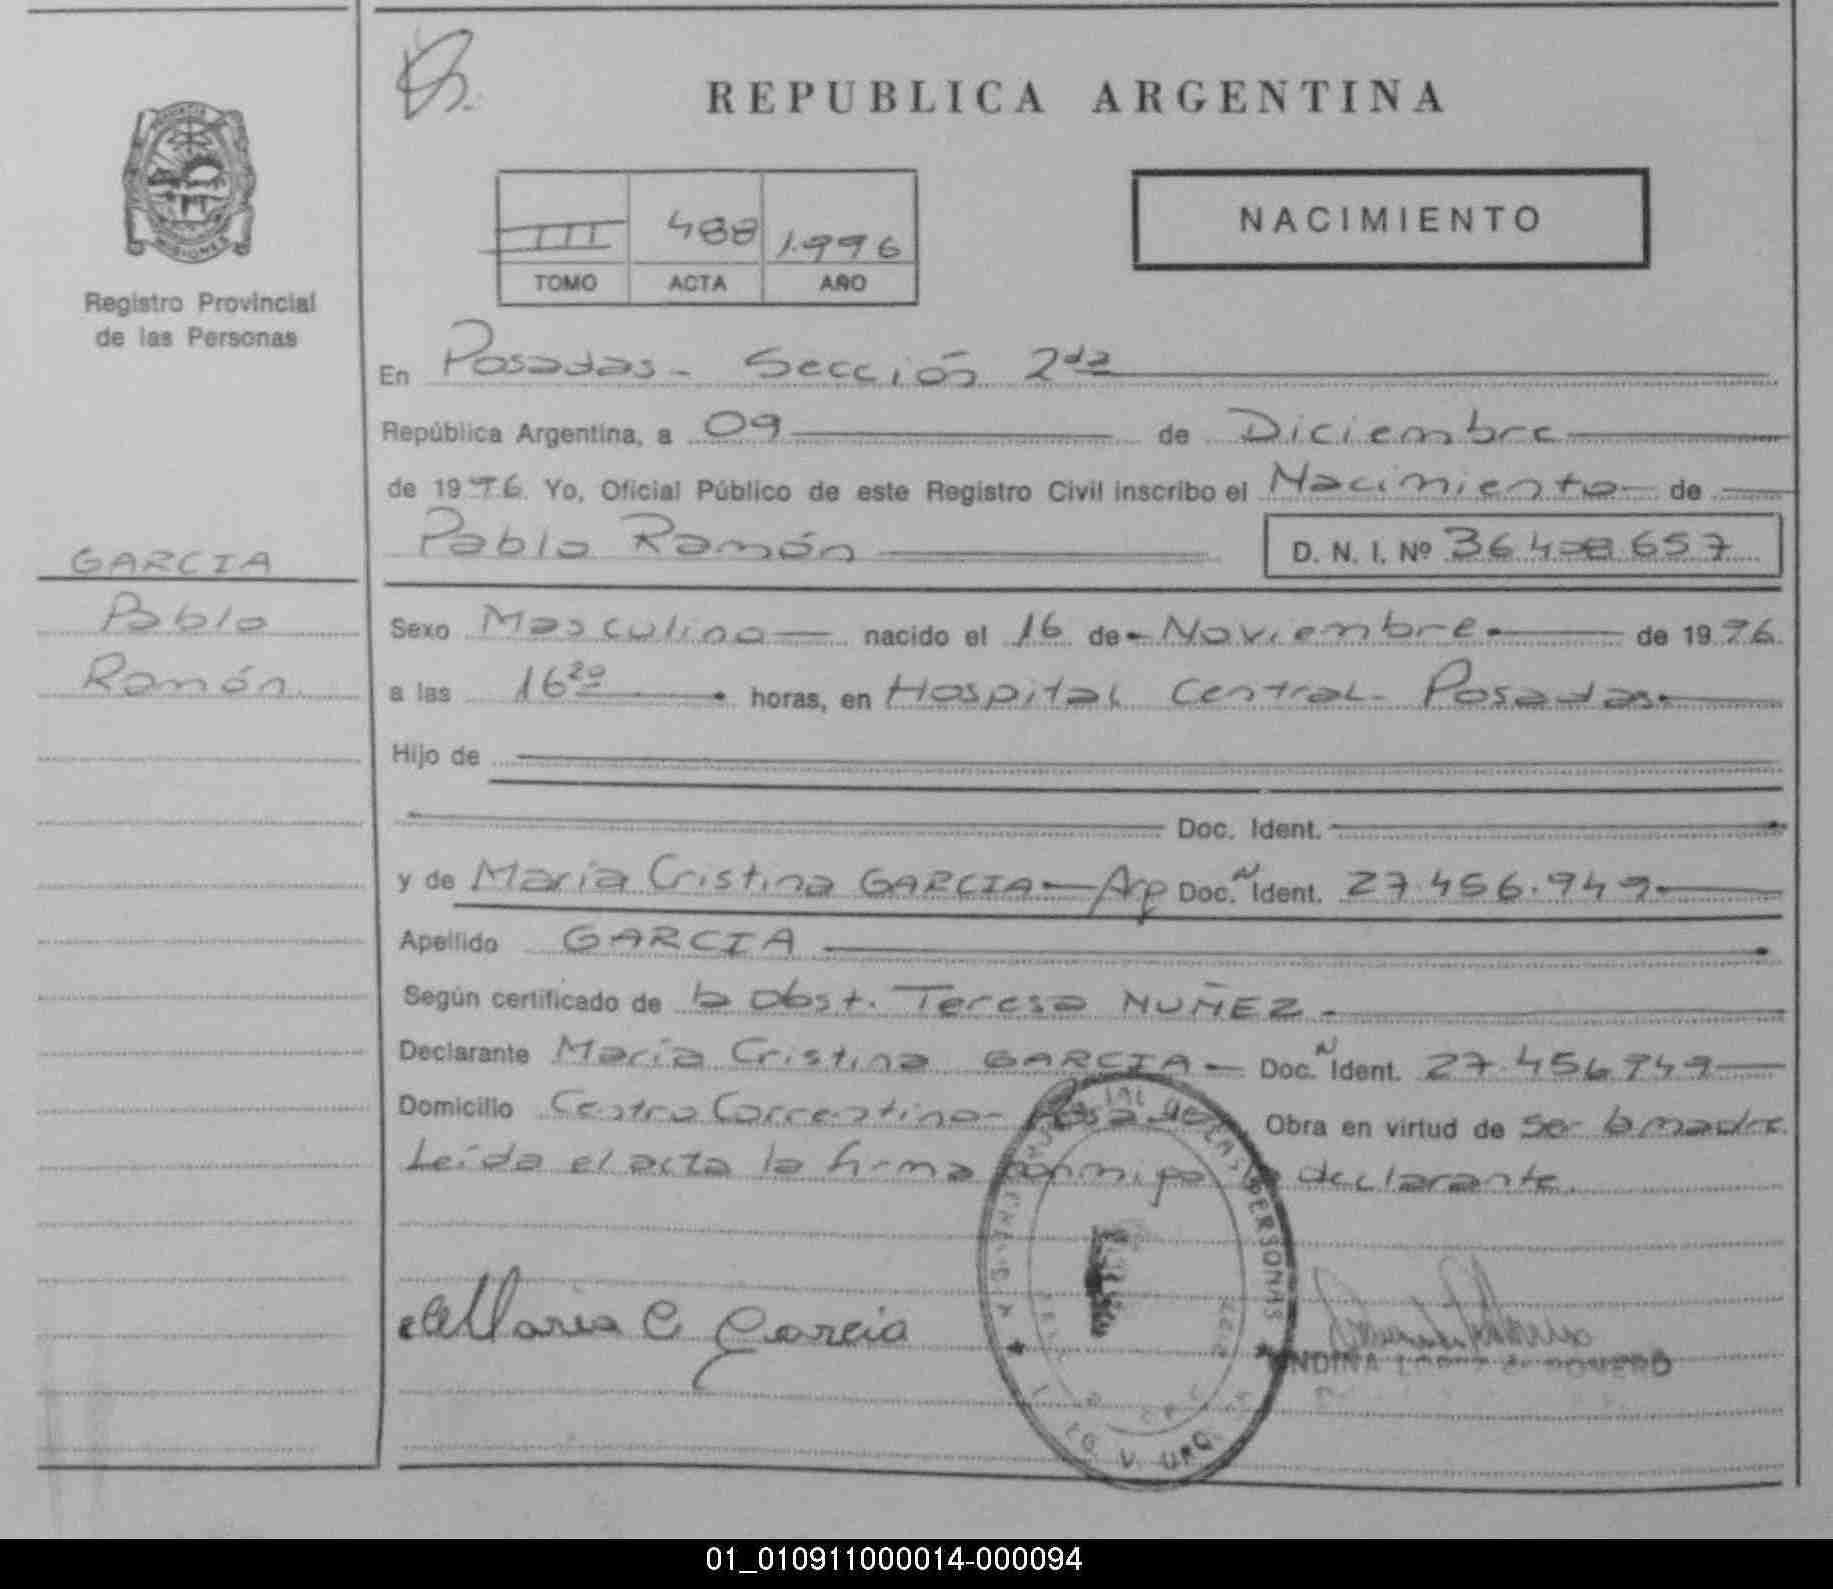 REPUBLICA ARGENTINA
MISIONES
Registro Provincial
de las Personas
III 488 1.996
TOMO ACTA AÑO
NACIMIENTO
En Posadas - Sección 2da
República Argentina, a 09 de Diciembre
de 1996. Yo, Oficial Público de este Registro Civil inscribo el Nacimiento de
Pablo Ramón D. N. I. Nº 36.408.657
GARCIA
Pablo
Ramón
Sexo Masculino nacido el 16 de Noviembre de 1996.
a las 16 20 horas, en Hospital Central - Posadas.
Hijo de
Doc. Ident.
y de María Cristina GARCIA - Arg Doc. N Ident. 27.456.949
Apellido GARCIA
Según certificado de la Obst. Teresa NUÑEZ.
Declarante María Cristina GARCIA - Doc. N Ident. 27.456.949
Domicilio Centro Correntino - Posadas Obra en virtud de ser la madre.
Leída el acta la firma conmigo la declarante.
DE LAS PERSONAS
María C García
LOPEZ de ROMERO
01_010911000014-000094